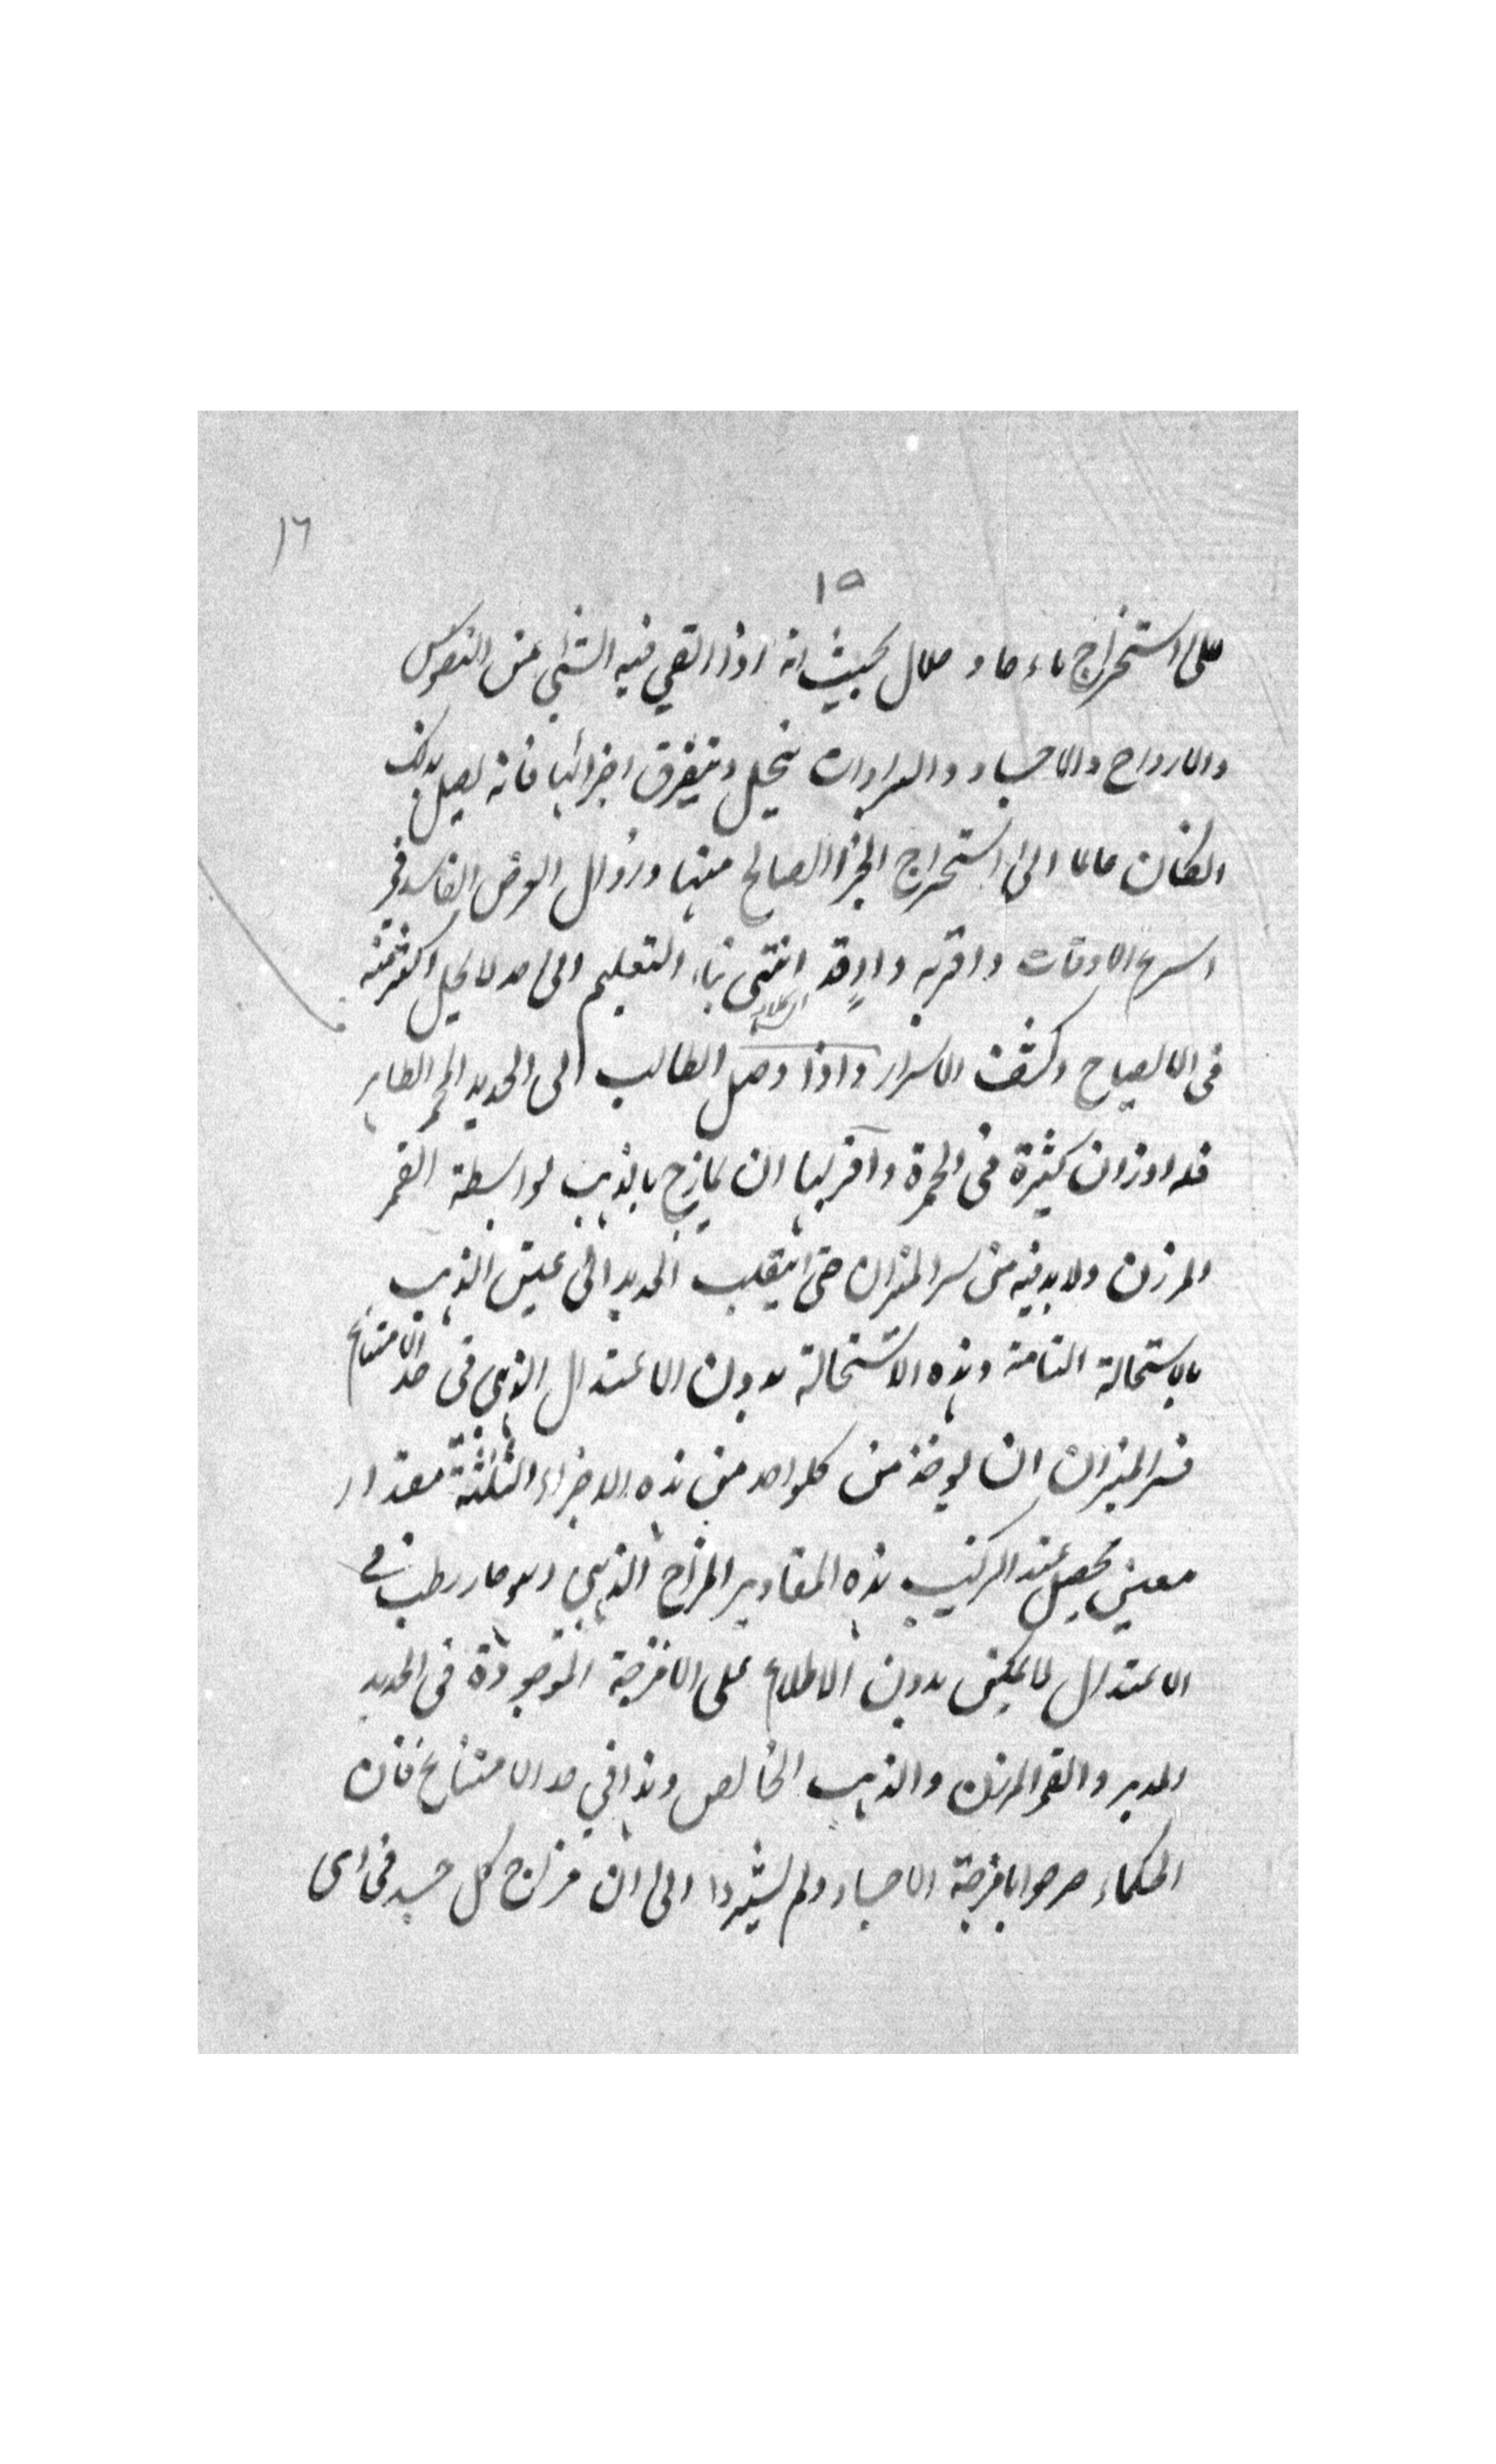 ١٦
١٥
على استخراج ماء حاد حلال بحيث انه اذا القي فيه الشئ من النفوس
والارواح والاجساد والبرادات ينحل ويتفرق اجزائها فانه يصل بذلك
الكان عالما الى استخراج الجزء الصالح منها وزوال العرض الفاسد في
اسرع الاوقات واقربه انتهى بناء التعليم الى حد لا يحل اكثر منه
في الايضاح وكشف الاسرار واذا وصل الطالب الى الحديد المحمر الطاهر
فله اوزان كثيرة في الحمرة واقربها ان يمازج بالذهب بواسطة القمر
المرزن ولا بد فيه من سر الميزان حتى ينقلب الحديد الى عين الذهب
بالاستحالة التامة وهذه الاستحالة بدون الاعتدال الذهبي في حد الامتناع
فسر الميزان ان يوخذ من كلواحد من هذه الاجزاء الثلثة مقدار
معين يحصل عند تركيب هذه المقادير المزاج الذهبي وهو حار رطب في
الاعتدال لا يمكن بدون الاطلاع على الامزجة الموجودة في الحديد
المدبر والقمر المرزن والذهب الخالص وهذا في حد الامتناع فان
الحكماء صرحوا بامزجة الاجساد ولم يشيروا الى ان مزاج كل جسد في اى